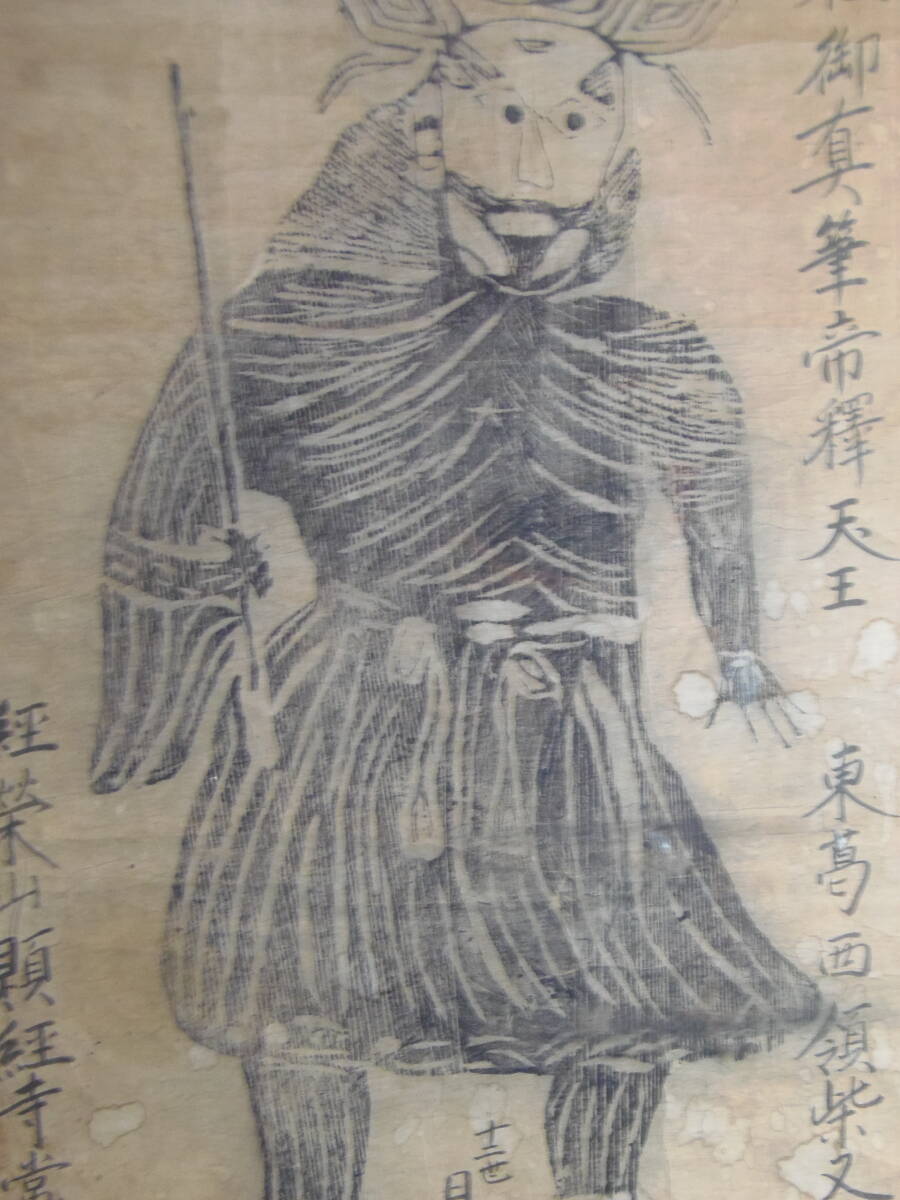 御真筆帝釋天王　東葛西領柴又
十二世
日
經榮山題經寺常